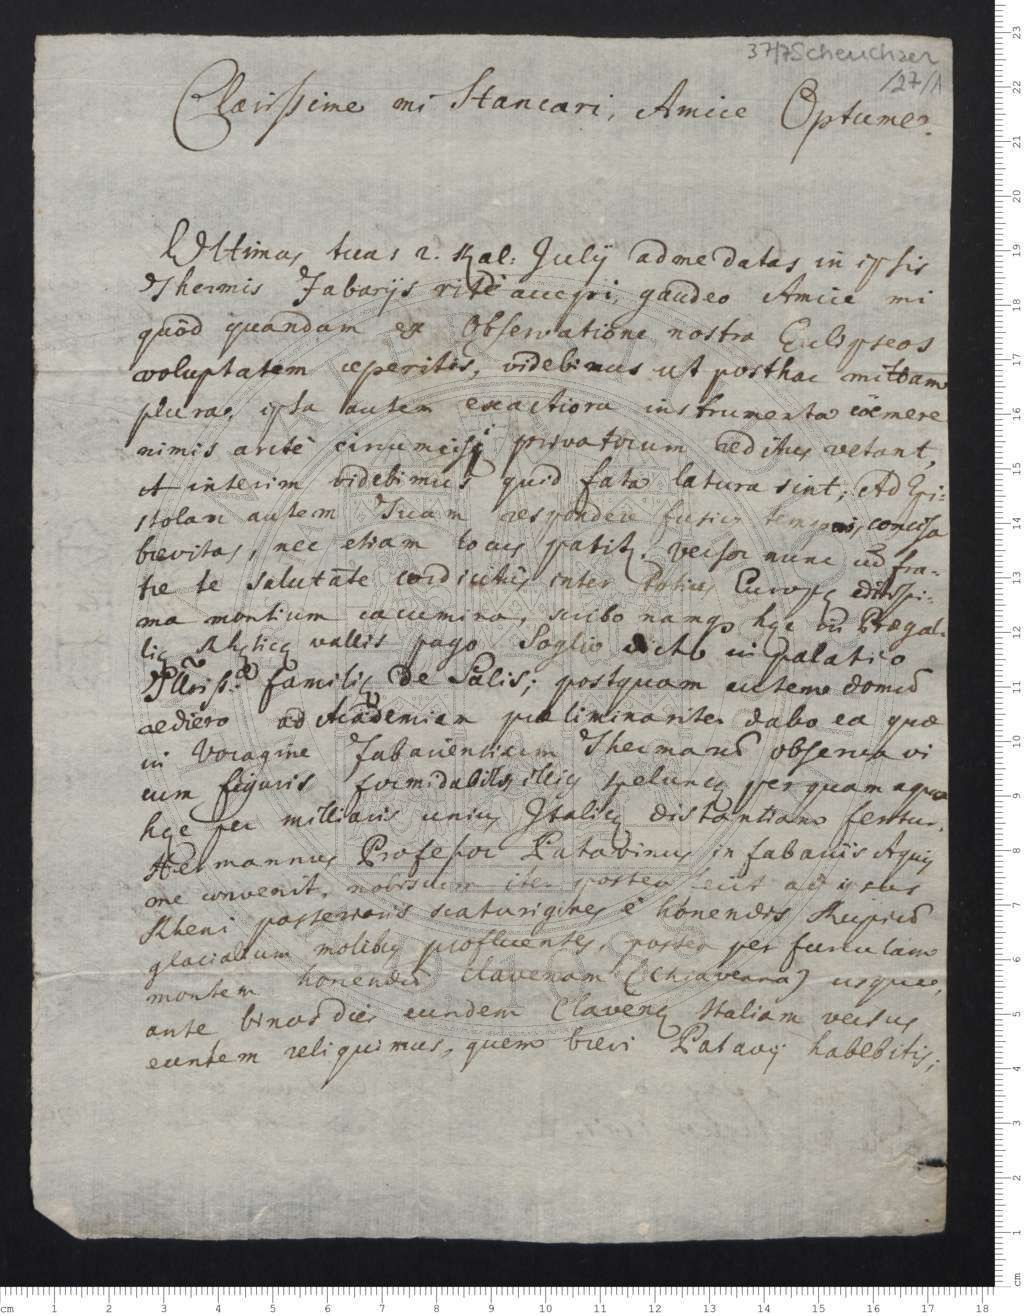 37/7 Scheuchzer
/27/1
Clarissime mi Stancari, Amice Optume.
Ultimas tuas 2. Kal: Julÿ ad me datas in ipsis
Thermis Fabarÿs ritè accepi, gaudeo Amice mi
quòd quandam ex Observatione nostra Eclypseos
voluptatem ceperitis, videbimus ut posthac mittam
plura, ista autem exactiora instrumenta coëmere
nimis arctè circumcisi privatorum reditus vetant,
et interim videbimus quid fata latura sint; Ad Epi-
stolam autem Tuam respondere fusius temporis concisa
brevitas, nec etiam locus patitr. versor nunc cū fra-
tre te salutāte cordicitus inter totius Europę altissi-
ma montium cacumina, scribo namq hęc in Prægal-
lię Rhęticę vallis pago Soglio dicto in palatio
Illriss: familię de Salis; postquam autem domū
rediero ad Academiam præliminariter dabo ea quæ
in Voragine Fabariensium Thermarū observavi
cum figuris formidabilis illius speluncę per quam aqua
hęc per milliaris unius Italici distantiam fertur.
Hermannus Professor Patavinus in fabariis Aquis
me convenit, nobiscum iter postea fecit ad ipsas
Rheni posterioris scaturigines è horrendis Rupiū
glacialium molibus profluentes, postea per furculam
montem horrendū Clavenam (Chiavenna) usque,
ante binos dies eundem Clavenę Italiam versus
euntem reliquimus, quem brevi Patavÿ habebitis;